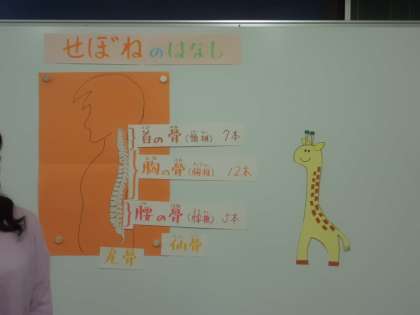 せぼねのはなし
首の骨(頚椎) 7本
胸の骨(胸椎) 12本
腰の骨(腰椎) 5本
尾骨
仙骨